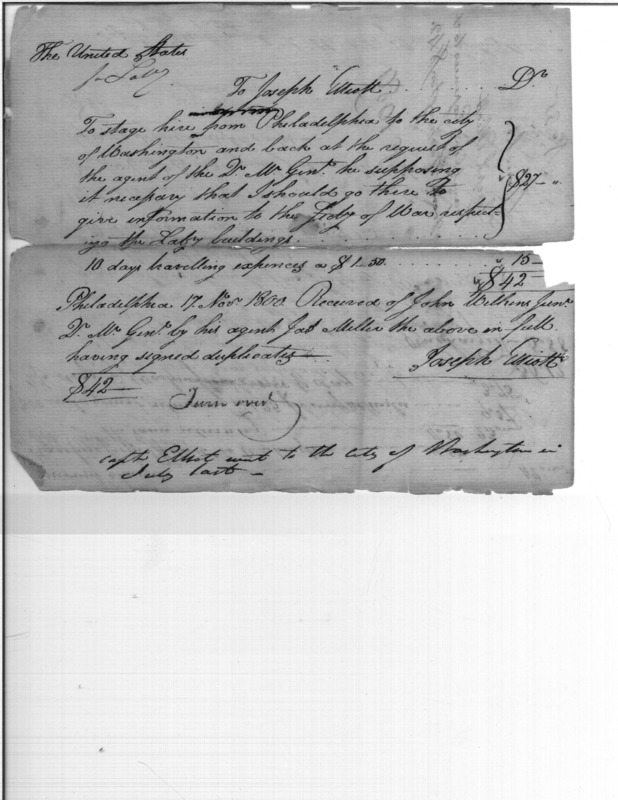 The United States
for Laby
To Joseph Elliott . . . . . . . . . . Dr
To stage hire from Philadelphia to the city
of Washington and back at the request of
the agent of the Qr. Mr. Genl. he supposing
it necessary that I should go there to
give information to the Secty of War respect-
ing the Laby buildings. . . . . . . . . . . . . . $27 — "
10 days travelling expences a $1-50. . . . . . . . . . . " 15 —
$42
Philadelphia 17 Novr 1800 Received of John Wilkins Junr.
Qr. Mr. Genl. by his agent Jas Miller the above in full
having signed duplicates —
Joseph Elliott
$42 —
Turn over
Capt Elliot went to the City of Washington in
July last —